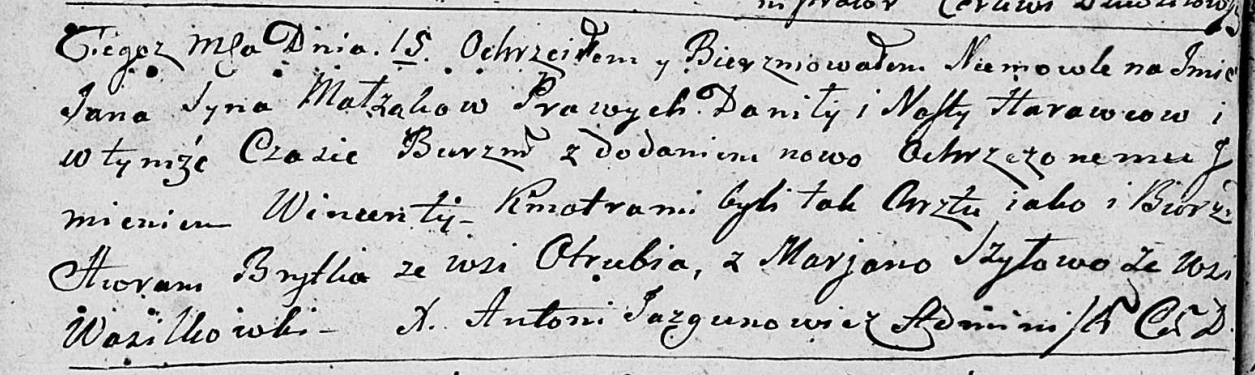 nistrator Cerkwi
Tegoż Msca Dnia. 15. Ochrzciłem y Bierzmowałem Niemowle na Imie
Jana Syna Małżąkow Prawych Daniły i Nasty Harawcow i
w tymże Czasie Burzm z dodaniem nowo Ochrzczonemu J
mieniem Wincenty - Kmotrami byli tak Chrztu iako i Bierz
Hwram Brytka ze wsi Otrubia, z Marjano Szyłowo ze wsi
Wasilkowki - X. Antoni Jazgunowicz Admini